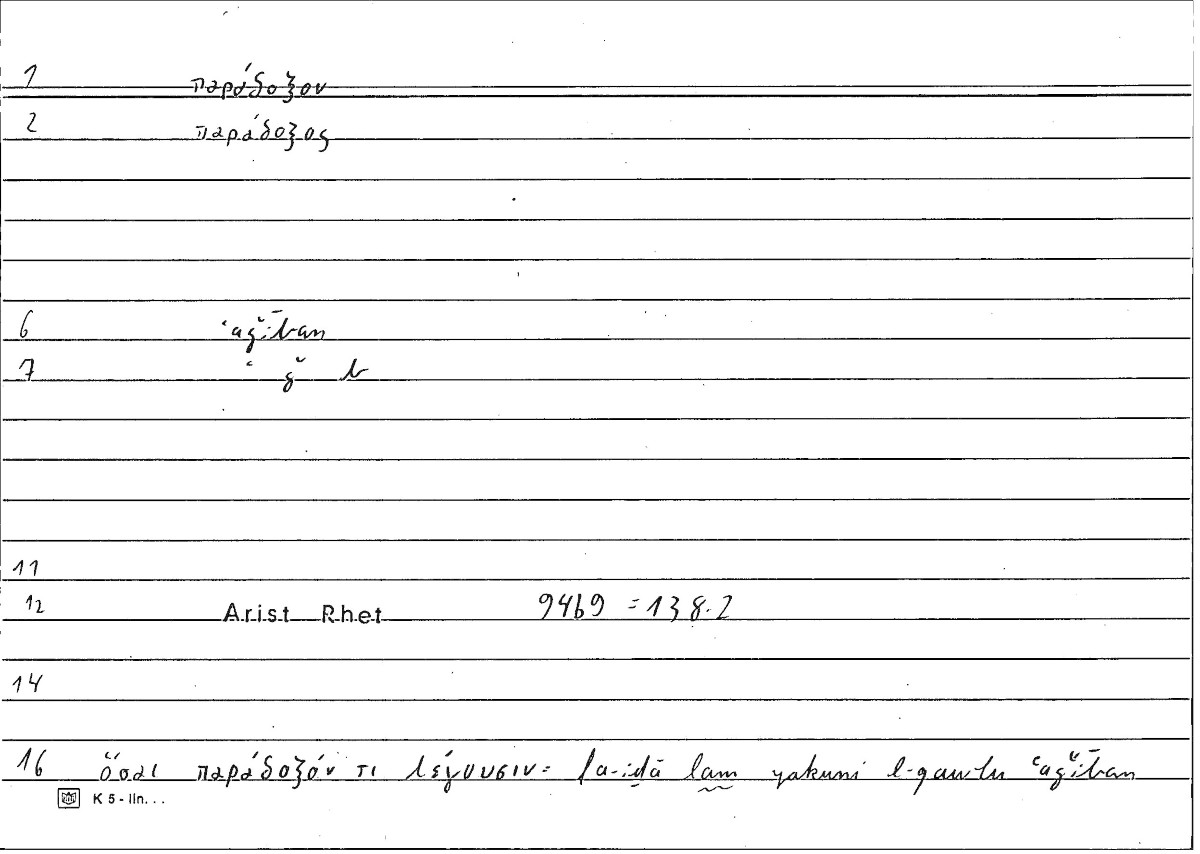 1 παράδοξον
2 παράδοξος
6 ʿaǧīban
7 ʿ ǧ b
11
12 Arist Rhet 94b9 =138.2
14
16 ὅσαι παράδοξόν τι λέγουσιν: fa-iḏā lam yakuni l-qawlu ʿaǧīban
K 5 - lin. . .